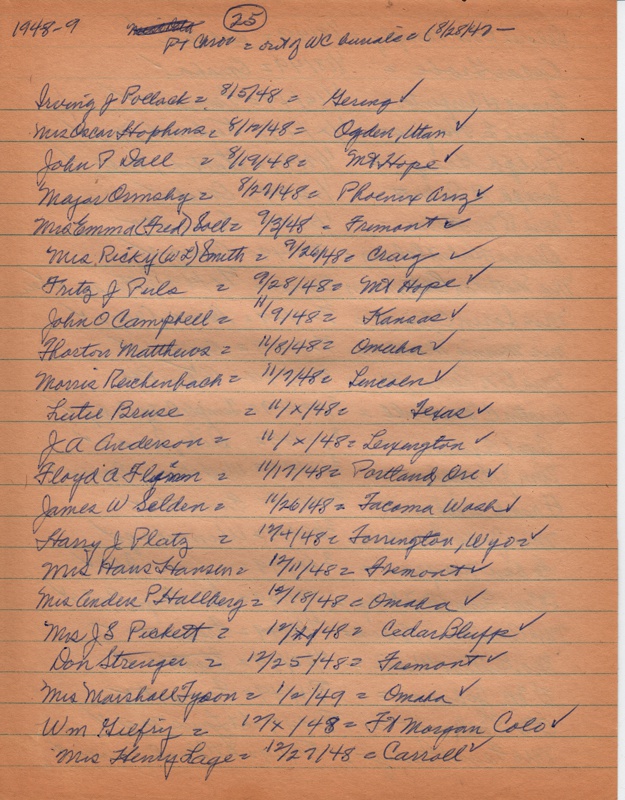 1948-9
25
= out of WC burials = (8/28/47 -
Irving J Pollock = 8/5/48 = Gering ✓
Mrs Oscar Hopkins = 8/12/48 = Ogden, Utah ✓
John P Dall = 8/19/48 = Mt Hope ✓
Major Ormsby = 8/27/48 = Phoenix Ariz ✓
Mrs Emma (Fred) Soll = 9/3/48 = Fremont ✓
Mrs Ricky (W L) Smith = 9/26/48 = Craig ✓
Fritz J Puls = 9/28/48 = Mt Hope ✓
John O Campbell = 11/9/48 = Kansas ✓
Thorton Matthews = 11/8/48 = Omaha ✓
Morris Reichenbach = 11/7/48 = Lincoln ✓
Lutie Bruse = 11/x/48 = Texas ✓
J A Anderson = 11/x/48 = Lexington ✓
Floyd A Flynn = 11/17/48 = Portland, Ore ✓
James W Selden = 11/26/48 = Tacoma Wash ✓
Harry J Platz = 12/4/48 = Torrington, Wyo = ✓
Mrs Hans Hansen = 12/11/48 = Fremont ✓
Mrs Anders P Hallberg = 12/18/48 = Omaha ✓
Mrs J S Pickett = 12/ /48 = Cedar Bluffs ✓
Don Strenger = 12/25/48 = Fremont ✓
Mrs Marshall Tyson = 1/2/49 = Omaha ✓
Wm Gilfry = 12/x/48 = Ft Morgan Colo ✓
Mrs Henry Lage = 12/27/48 = Carroll ✓